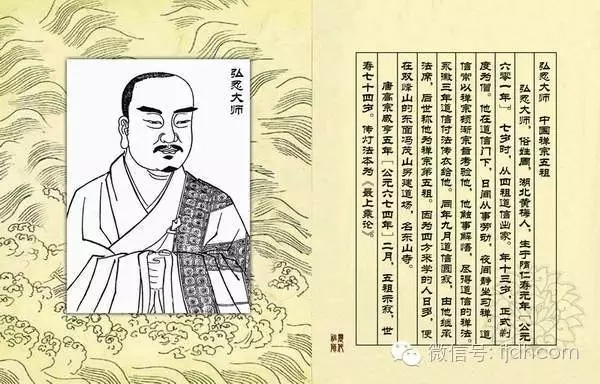 弘忍大师
弘忍大师 中国禅宗五祖
弘忍大师，俗姓周，湖北黄梅人，生于隋仁寿元年[公元
六零一年]。七岁时，从四祖道信出家。年十三岁，正式剃
度为僧。他在道信门下，日间从事劳动，夜间静坐习禅。道
信常以禅宗顿渐宗旨考验他，他触事解悟，尽得道信的禅法。
永徽三年道信付法传衣给他。同年九月道信圆寂，由他继承
法席，后世称他为禅宗第五祖。因为四方来学的人日多，便
在双峰山的东面冯茂山另建道场，名东山寺。
唐高宗咸亨五年[公元六七四年]二月，五祖示寂，世
寿七十四岁。传灯法本为《最上乘论》。
微信号: fjdhcom